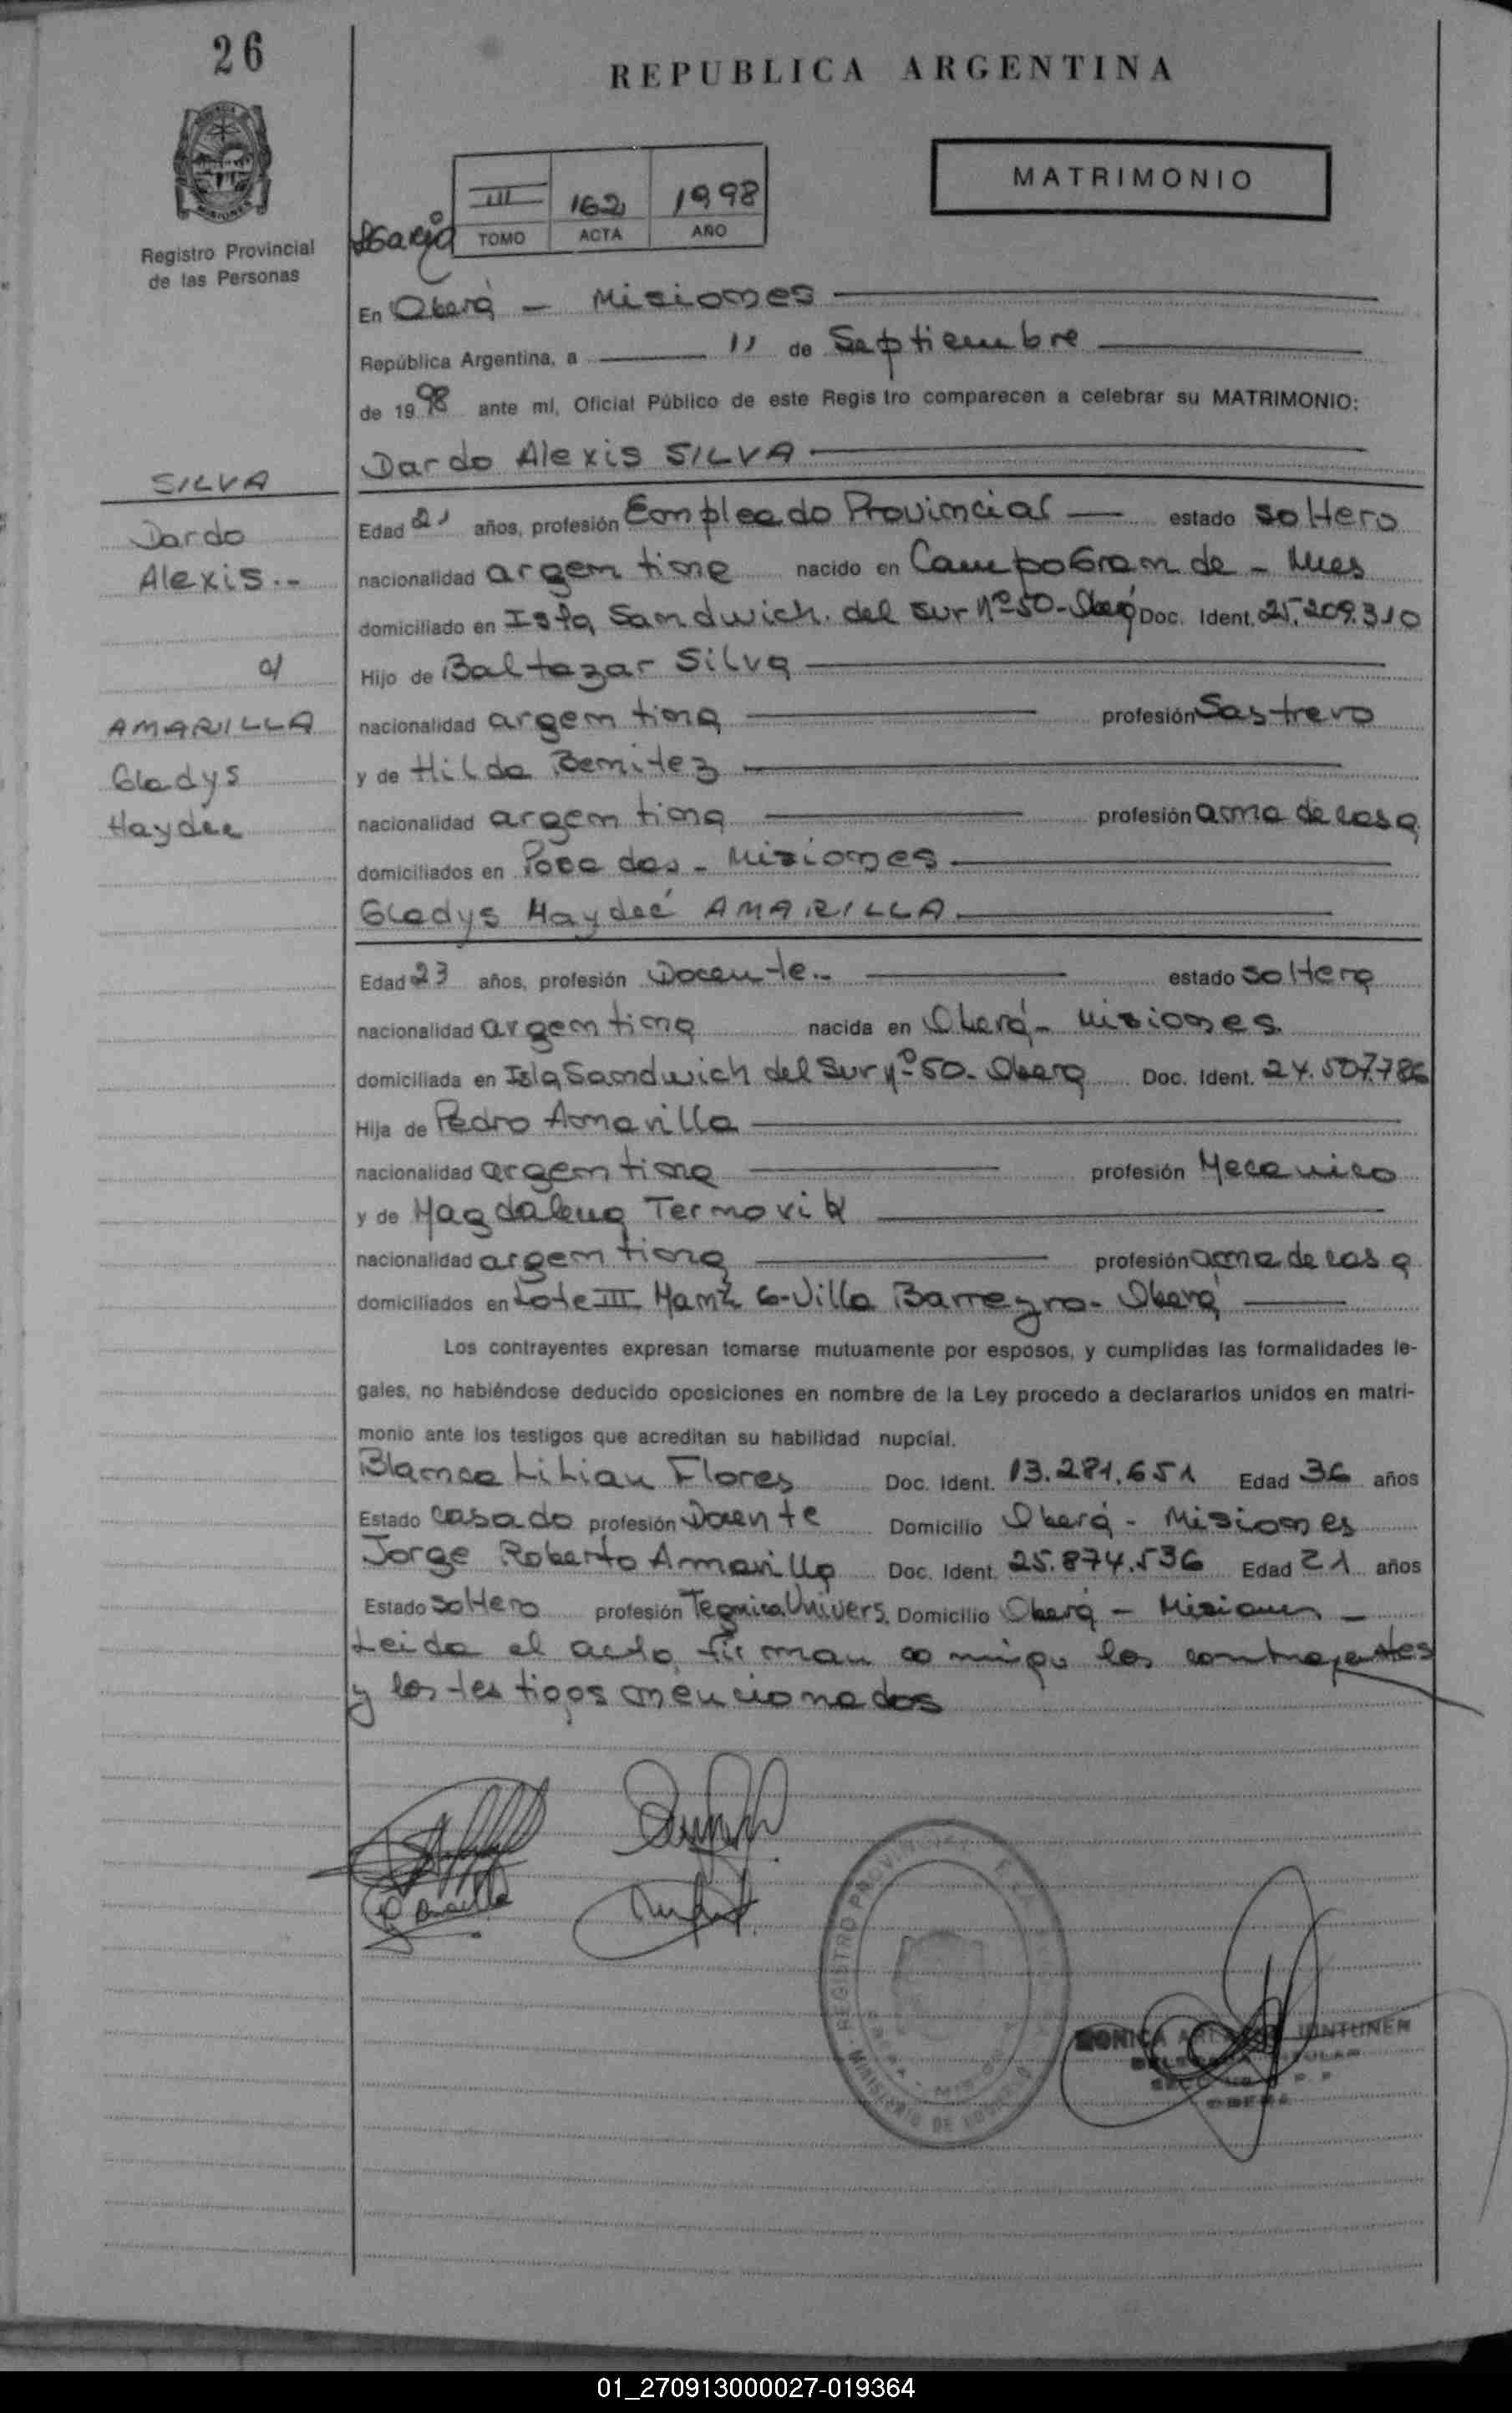 26
REPUBLICA ARGENTINA
MATRIMONIO
III 162 1998
TOMO ACTA AÑO
Registro Provincial
de las Personas
En Oberá - Misiones
República Argentina, a 11 de Septiembre
de 1998 ante mí, Oficial Público de este Regis tro comparecen a celebrar su MATRIMONIO:
Dardo Alexis SILVA
SILVA
Dardo
Alexis.-
c/
AMARILLA
Gladys
Haydée
Edad 21 años, profesión Empleado Provincial estado soltero
nacionalidad argentina nacido en Campo Grande - Mnes
domiciliado en Isla Sandwich del Sur Nº 50 - Oberá Doc. Ident. 25.209.310
Hijo de Baltazar Silva
nacionalidad argentina profesión Sastrero
y de Hilda Benitez
nacionalidad argentina profesión ama de casa
domiciliados en Posadas - Misiones
Gladys Haydeé AMARILLA
Edad 23 años, profesión Docente.- estado soltera
nacionalidad argentina nacida en Oberá - Misiones
domiciliada en Isla Sandwich del Sur nº 50 - Obera Doc. Ident. 24.507.786
Hija de Pedro Amarilla
nacionalidad argentina profesión Mecanico
y de Magdalena Ternovik
nacionalidad argentina profesión ama de casa
domiciliados en Lote III Manz 6 - Villa Barreyro - Oberá
Los contrayentes expresan tomarse mutuamente por esposos, y cumplidas las formalidades le-
gales, no habiéndose deducido oposiciones en nombre de la Ley procedo a declararlos unidos en matri-
monio ante los testigos que acreditan su habilidad nupcial.
Blanca Lilian Flores Doc. Ident. 13.281.651 Edad 36 años
Estado casado profesión Docente Domicilio Oberá - Misiones
Jorge Roberto Amarilla Doc. Ident. 25.874.536 Edad 21 años
Estado soltero profesión Tegnica Univers. Domicilio Oberá - Misiones
Leida el acta, firman conmigo los contrayentes
y los testigos mencionados
REGISTRO PROVINCIAL
MINISTERIO DE GOBIERNO
OBERA
01_270913000027-019364